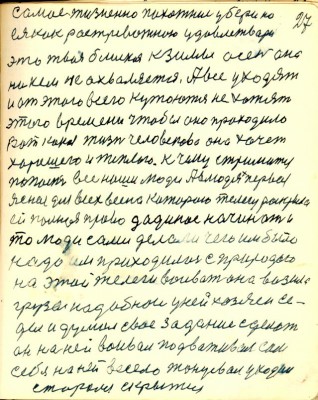 27
самое жизненно похотние уберимо
ся как растревожную удовлетвори
это твоя близка к зиме осень она
ни кем не охваляется. А все уходят
и от этого всего кутаются не хотят
этого времени чтобы оно проходило
Вот какая жизнь человеково она хочет
хорошего и теплого к чему стримится
попасть все наши люди А людям первая
ясная для всех весна которою телегу раскрыла
ей полное право дадиное начинать
то люди сами делали чего им было
надо им приходилось с природою
на этой телеги воивать она возила
грузы надобное у ней хозяин се-
дел и думал свое задание сделать
он на ней воивал подваживал сам
себя на ней весело тонцевал уходил
старался скрытся